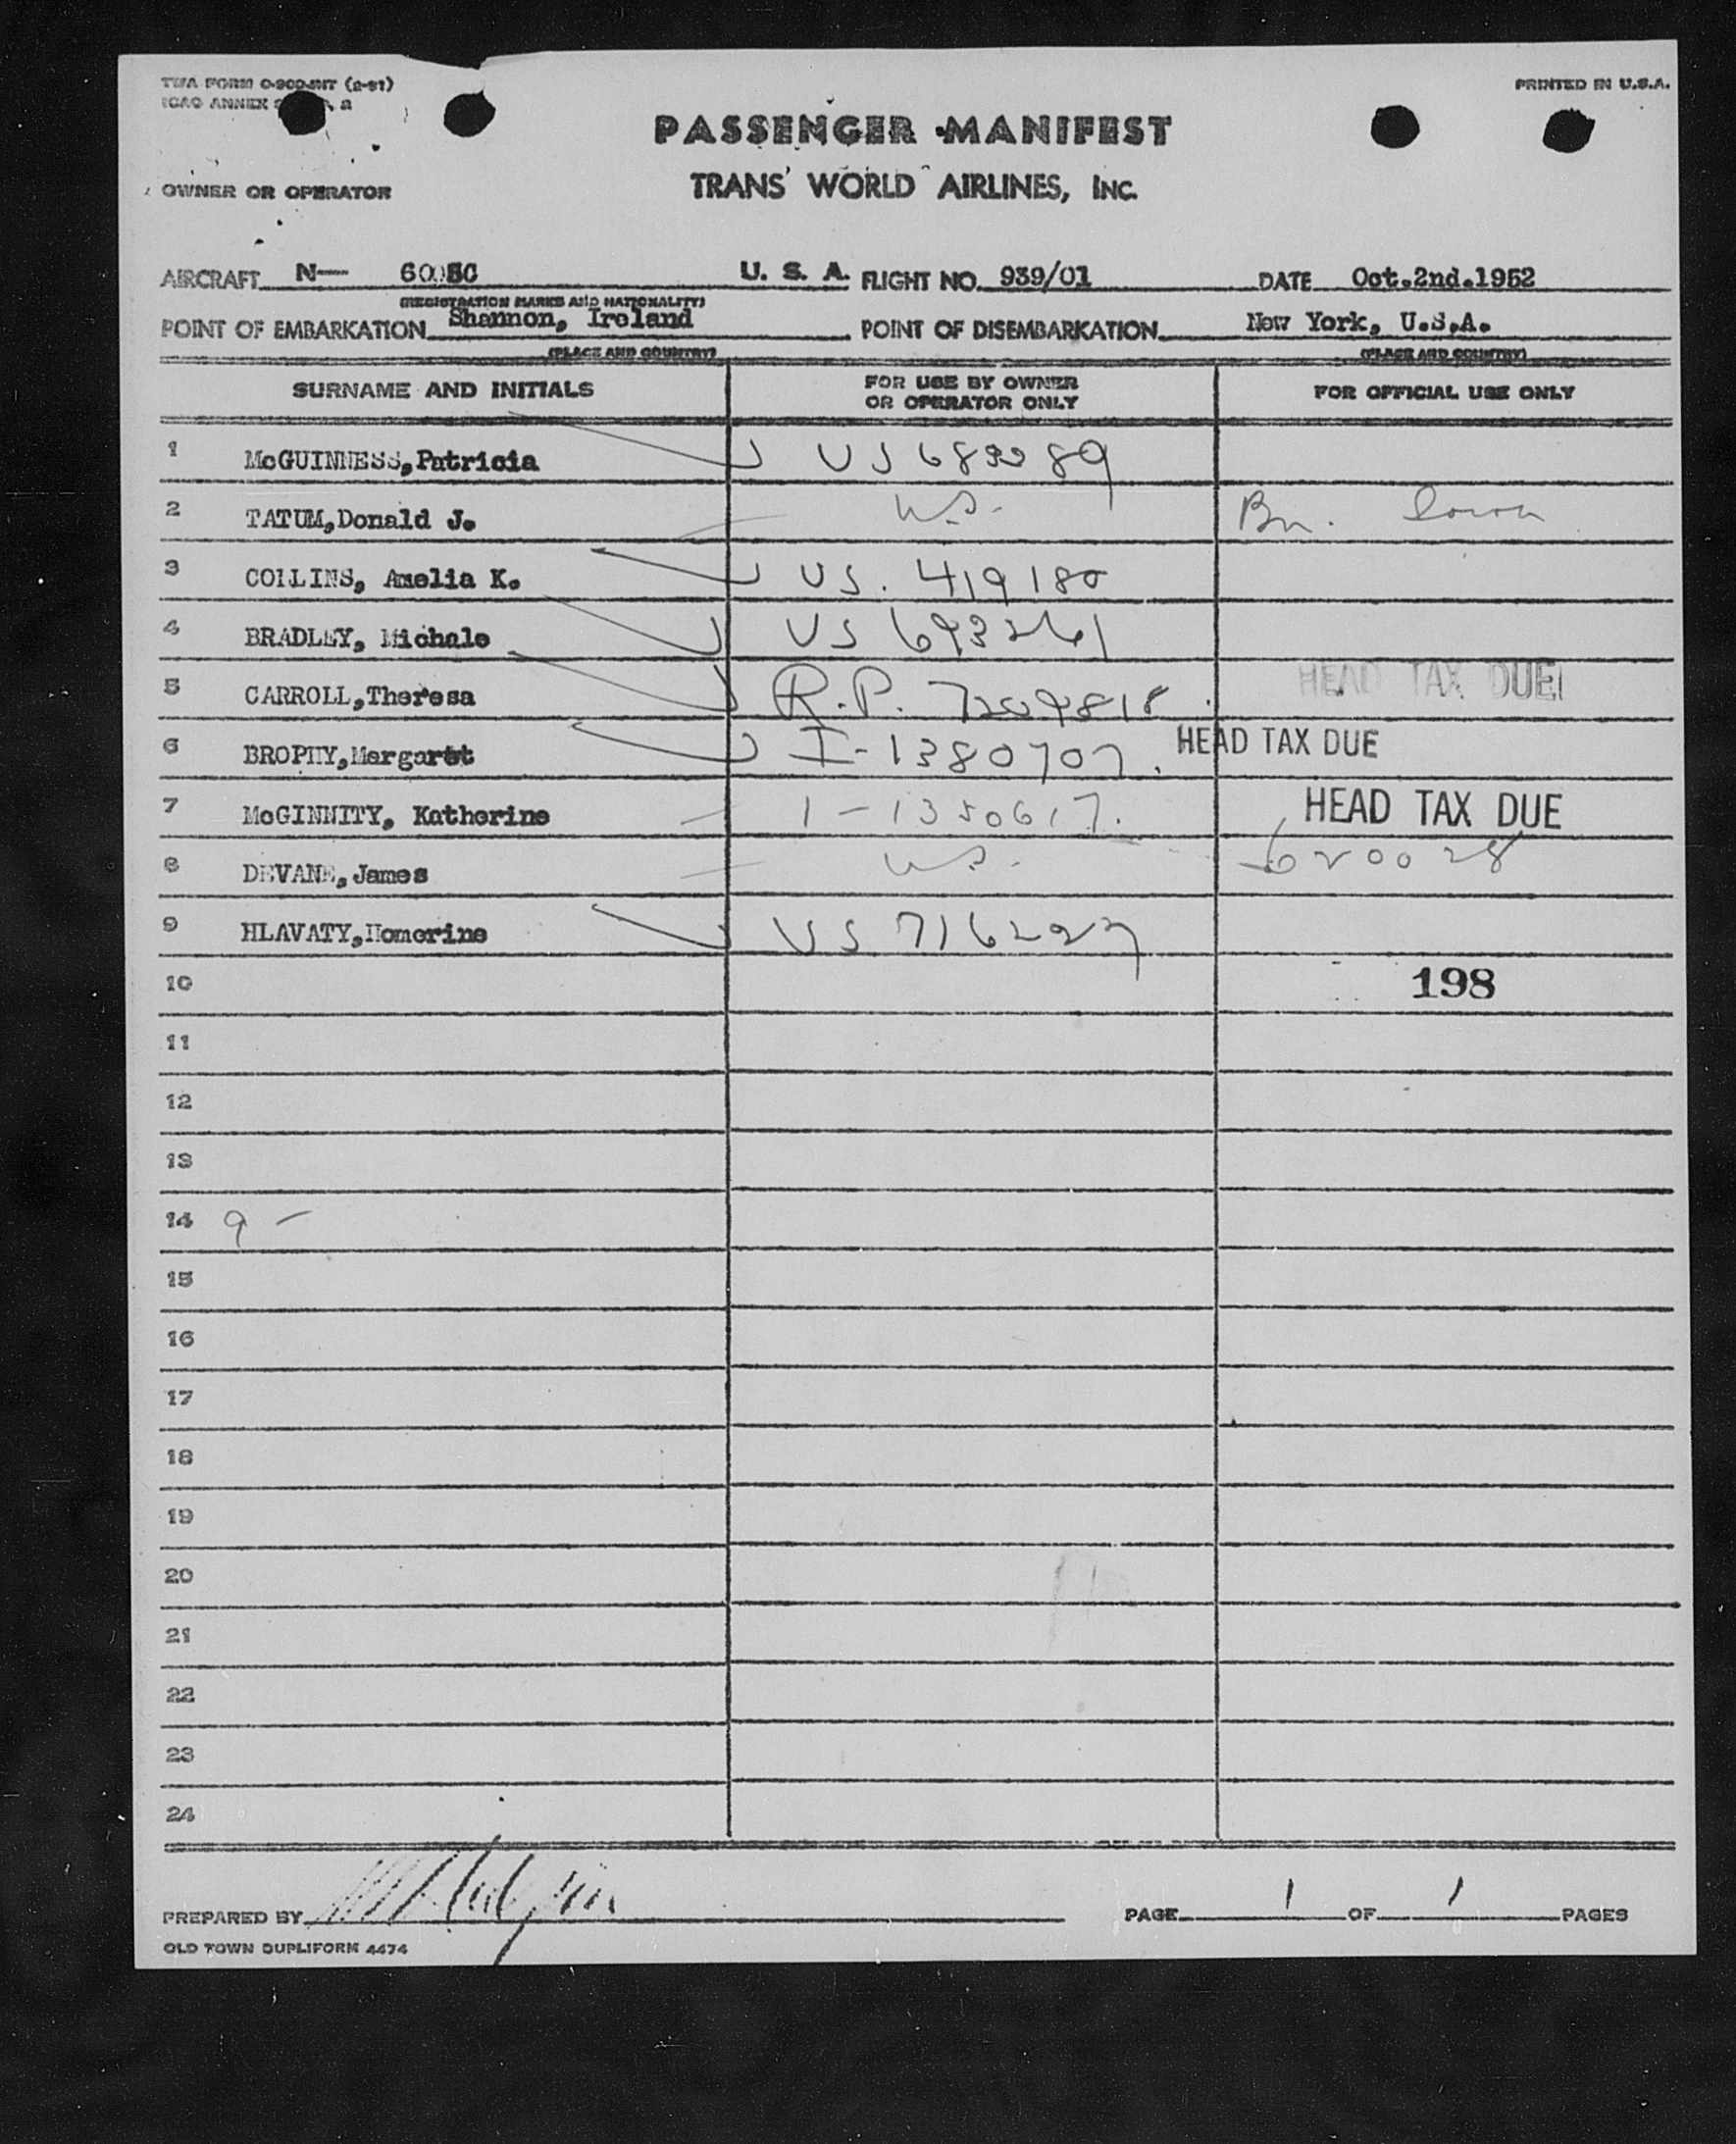 TWA FORM O-900-INT (2-51)
PRINTED IN U.S.A.
ICAO ANNEX
PASSENGER MANIFEST
OWNER OR OPERATOR
TRANS WORLD AIRLINES, INC.
AIRCRAFT N— U. S. A. FLIGHT NO. 939/01 DATE Oct.2nd.1952
(REGISTRATION MARKS AND NATIONALITY)
POINT OF EMBARKATION Shannon, Ireland POINT OF DISEMBARKATION New York, U.S.A.
(PLACE AND COUNTRY) (PLACE AND COUNTRY)
SURNAME AND INITIALS FOR USE BY OWNER OR OPERATOR ONLY FOR OFFICIAL USE ONLY
1 McGUINNESS,Patricia US
2 TATUM,Donald J. U.S. Bn.
3 COLLINS, Amelia K. US. 419180
4 BRADLEY, Michale US 693261
5 CARROLL,Theresa R.P. 7209818 HEAD TAX DUE
6 BROPHY,Margaret I-1380707. HEAD TAX DUE
7 McGINNITY, Katherine I-1350617. HEAD TAX DUE
8 DEVANE,James U.S. 620028
9 HLAVATY,Homerine US
10 198
11
12
13
14 9 -
15
16
17
18
19
20
21
22
23
24
PREPARED BY PAGE 1 OF 1 PAGES
OLD TOWN DUPLIFORM 4474